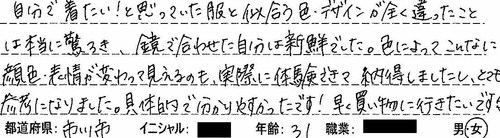 自分で着たい!と思っていた服と似合う色・デザインが全く違ったこと
は本当に驚きで、鏡で合わせた自分は新鮮でした。色によってこんなに
顔色・表情が変わって見えるのも、実際に体験できて納得しましたし、とても
参考になりました。具体的で分かりやすかったです!早く買い物に行きたいです
都道府県:市川市 イニシャル: 年齢:31 職業: 男・女